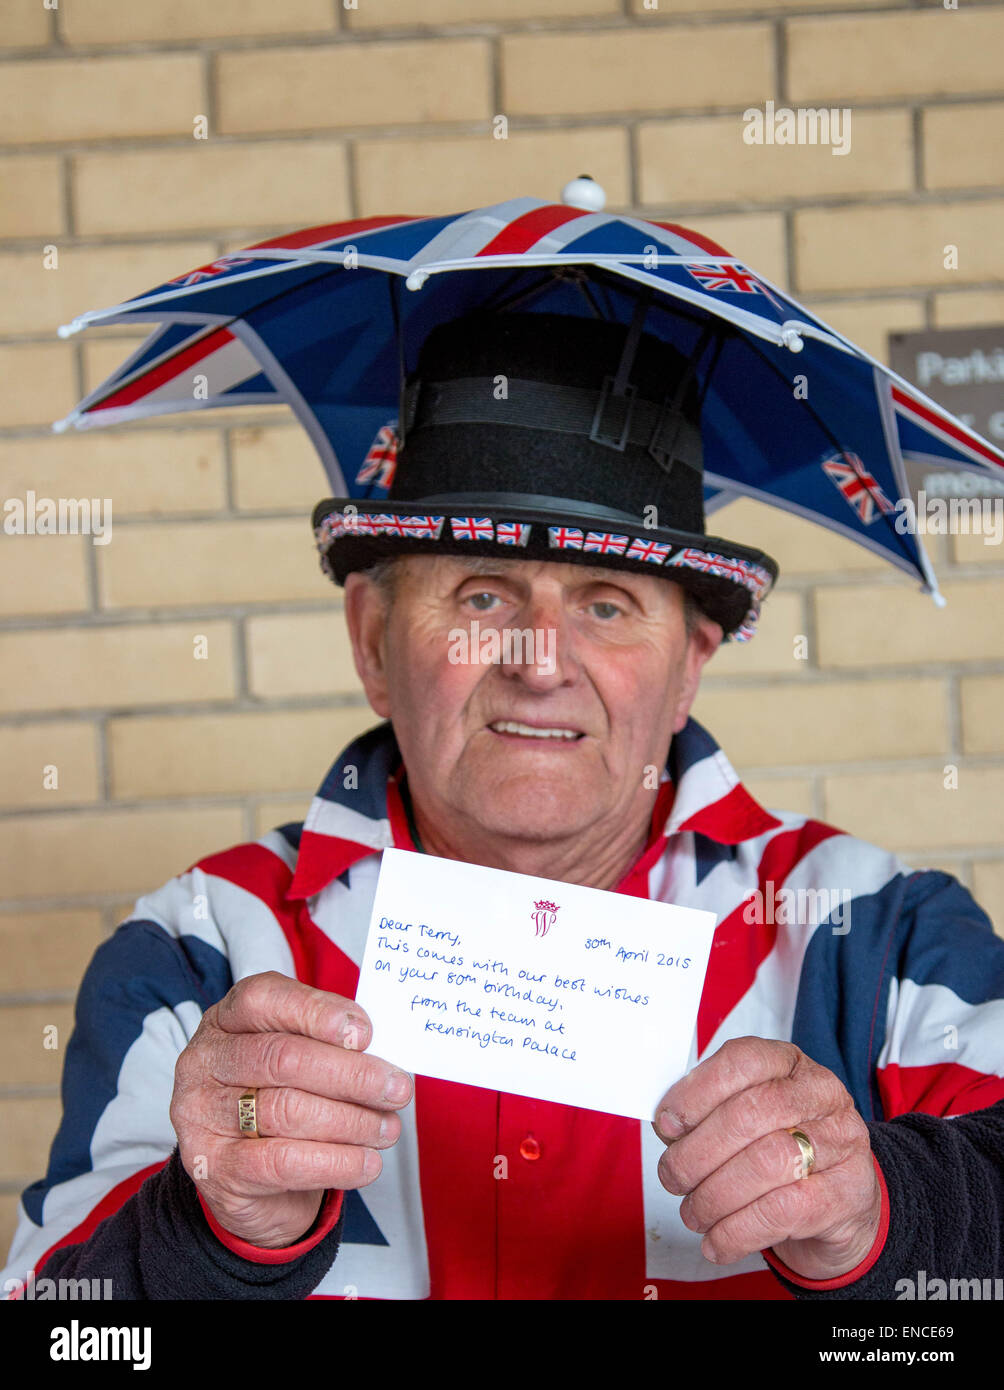 Parki
mor
30th April 2015
Dear Terry,
This comes with our best wishes
on your 80th birthday.
from the team at
Kensington Palace
DAD
alamy
Image ID: ENCE69
www.alamy.com